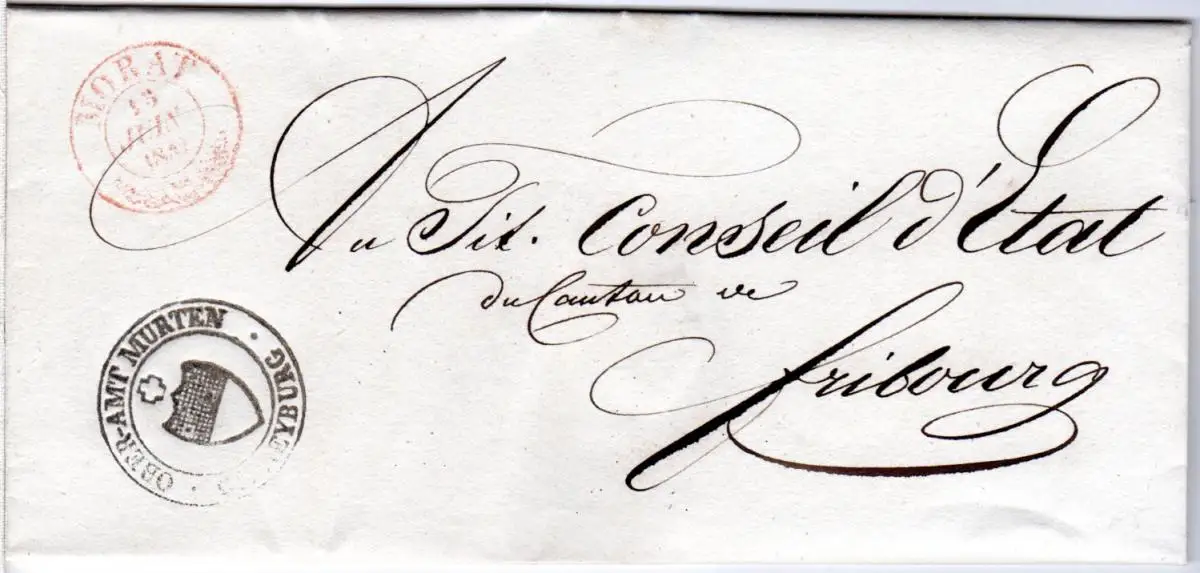 MORAT
13
JUIN
Au Tit. Conseil d'Etat
du Canton de
Fribourg
OBER-AMT MURTEN